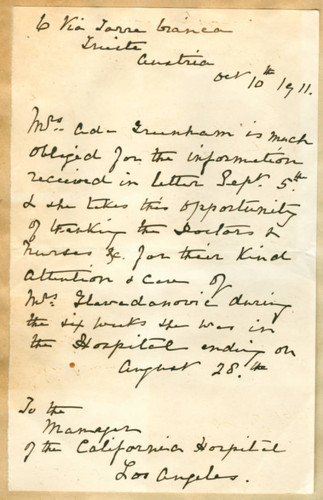 6 Via Torre bianca
Trieste
Austria
Oct 10th 1911.
Mrs. Ada Greenham is much
obliged for the information
received in letter Sept. 5th
& she takes this opportunity
of thanking the Doctors &
nurses &c. for their Kind
attention & care of
Mrs Glavadanovic during
the six weeks she was in
the Hospital ending on
August 28.th
To the
Manager
of the California Hospital
Los Angeles.